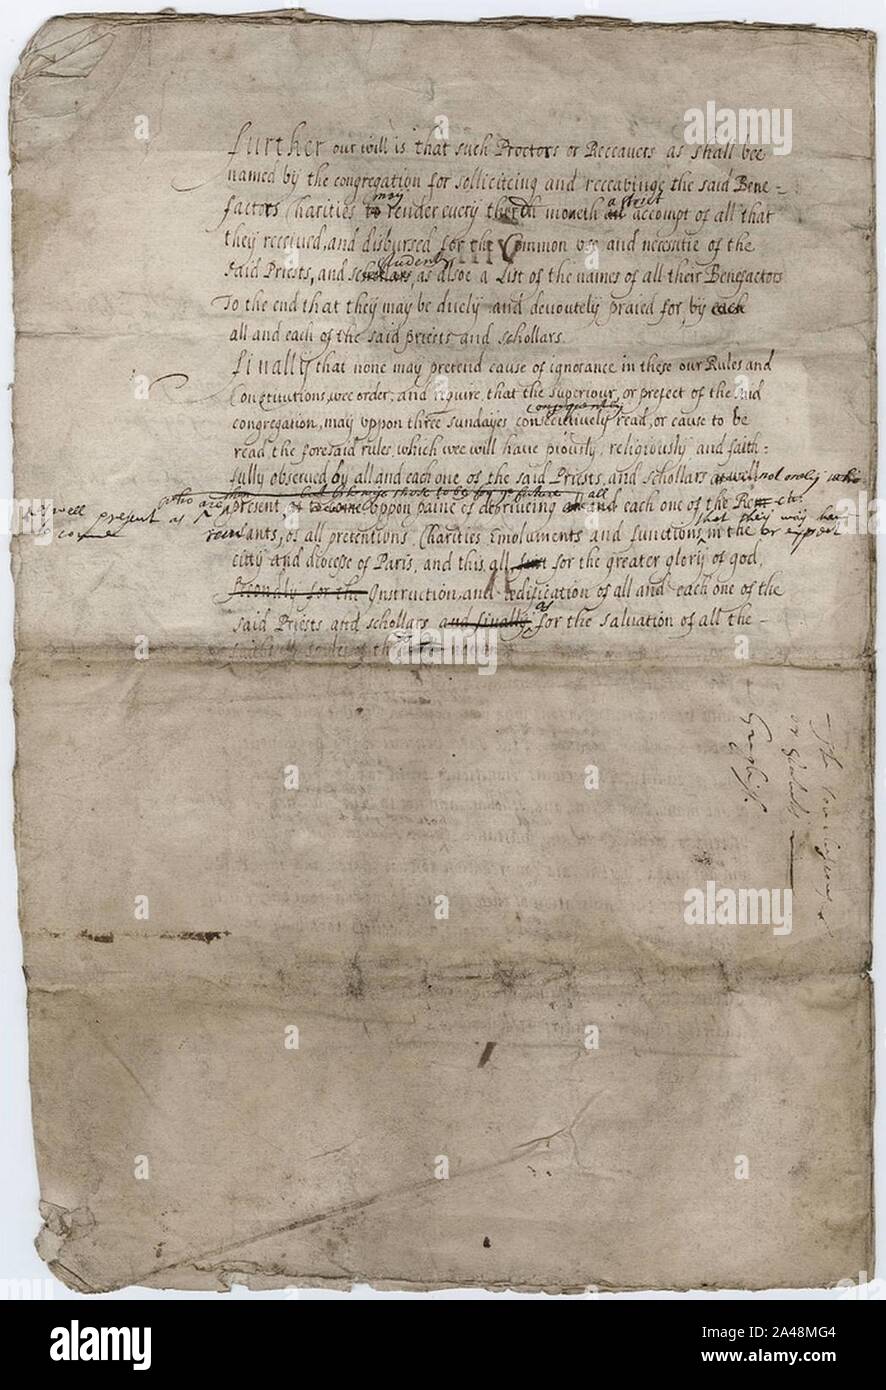 Further our will is that such Proctors or Receavers as shall bee
named by the congregation for solliciteing and receabinge the said Bene=
may a strict
factors Charities to render every therth moneth an accompt of all that
they received, and disbursed for the Common use and necessitie of the
students
said Priests, and schollars, as alsoe a List of the names of all their Benefactors
To the end that they may be duely and devoutely praied for, by each
all and each of the said priests and schollars.
Finally that none may pretend cause of ignorance in these our Rules and
Constitutions, wee order, and require, that the Superiour, or prefect of the said
consequently
congregation, may uppon three sundayes consecutively read, or cause to be
read the foresaid rules, which wee will have piously, religiously and faith=
fully observed by all and each one of the said Priests, and schollars as well not only who
who are all
present, or to come uppon paine of depriveing an and each one of the
as well present as to come
that they may have or expect
of all pretentions, Charities Emoluments and functions in the
citty and diocesse of Paris, and this all first for the greater glory of god,
secondly for the Instruction, and edification of all and each one of the
as
said Priests and schollars and finally for the salvation of all the-
of the
English.
alamy
Image ID: 2A48MG4
www.alamy.com